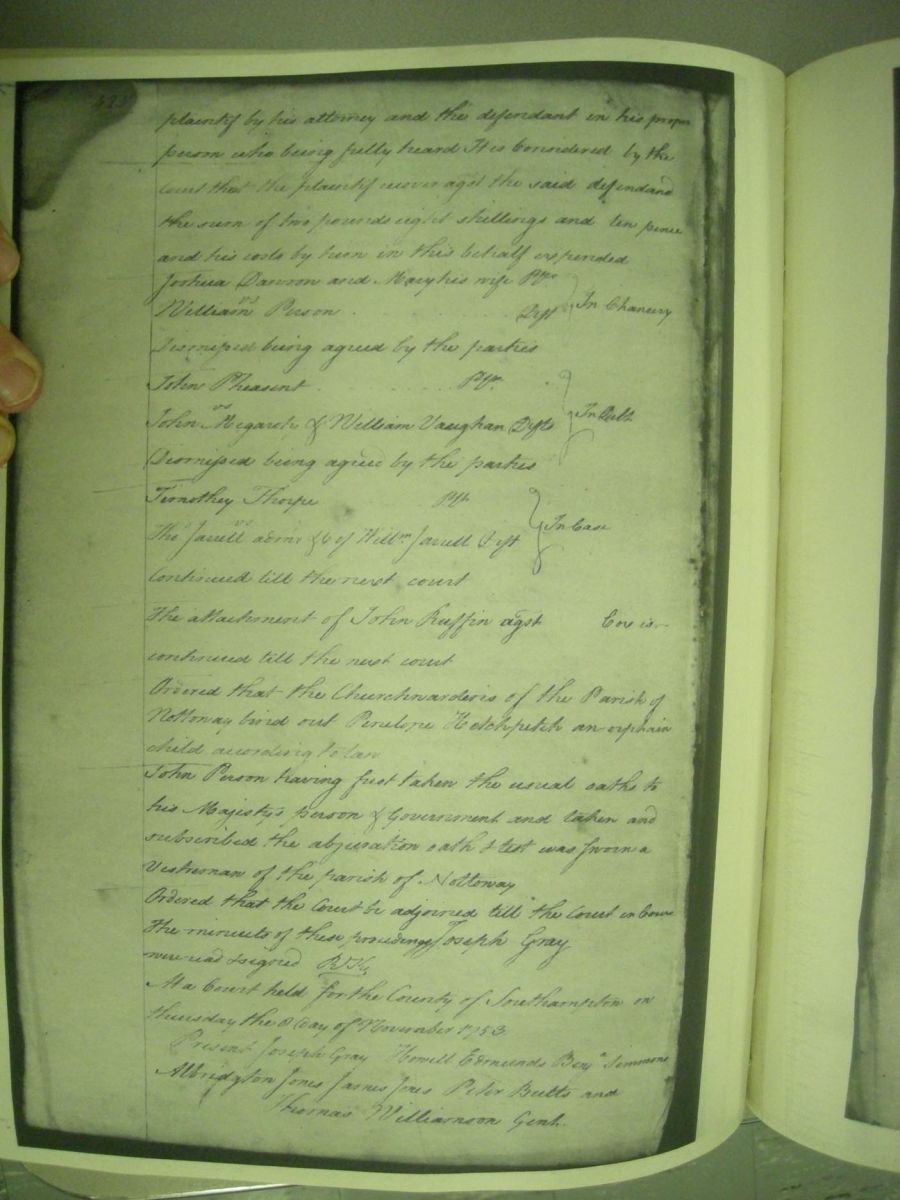 423
plaintif by his attorney and the defendant in his proper
person who being fully heard It is Considered by the
court that the plaintif recover agst the said defendand
the sum of two pounds eight shillings and ten pence
and his costs by him in this behalf expended
Joshua Dawson and Mary his wife Pts
vs
William Person Deft In Chancery
Dismissed being agreed by the parties
John Pheasent Pts
vs
John Megarets & William Vaughan Defts In Debt
Dismissed being agreed by the parties
Timothey Thorpe Plt
vs
The Jarrell admr &c of Willm Jarrell Deft In Case
Continued till the next court
The attachment of John Ruffin agst Cox is
continued till the next court
Ordered that the Churchwardens of the Parish of
Nottoway bind out Penelope Hotchpetch an orphain
child according to law
John Person having first taken the usual oaths to
his Majesty's person & Government and taken and
subscribed the abjuration oath & test was sworn a
Vestreman of the parish of Nottoway
Ordered that the Court be adjourned till the Court in Course
The minuets of these proceedings Joseph Gray
were read & signed
At a Court held for the County of Southampton on
thursday the 8 day of November 1753
Present Joseph Gray Howell Edmunds Benja Simmons
Albridgton Jones James Jones Peter Butts and
Thomas Williamson Gent.